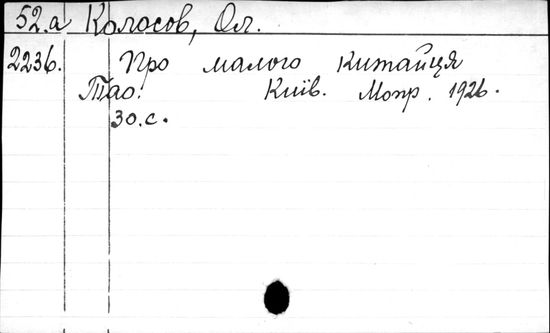 52.a Колосов, Ол.
2236. Про малого китайця
Тао. Київ. Мопр. 1926.
30.с.